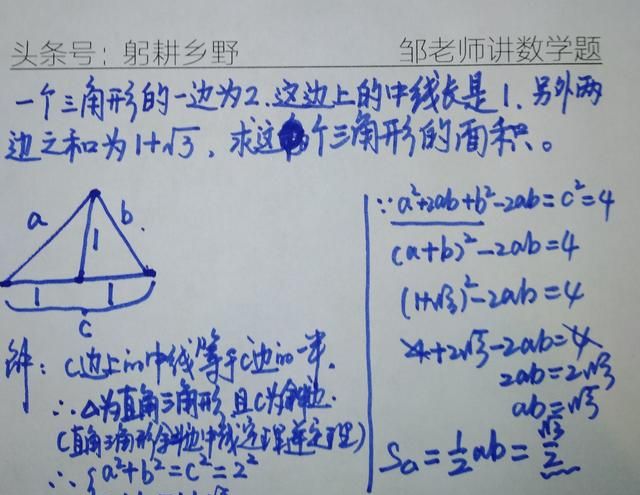 头条号：躬耕乡野 邹老师讲数学题
一个三角形的一边为2，这边上的中线长是1，另外两
边之和为1+√3，求这个三角形的面积。
a b
1
1 1
c
解：c边上的中线等于c边的一半，
∴△为直角三角形且c为斜边.
(直角三角形斜边中线定理逆定理)
∴{a²+b²=c²=2²
∵a²+2ab+b²-2ab=c²=4
(a+b)²-2ab=4
(1+√3)²-2ab=4
4+2√3-2ab=4
2ab=2√3
ab=√3
S△=½ab=√3/2